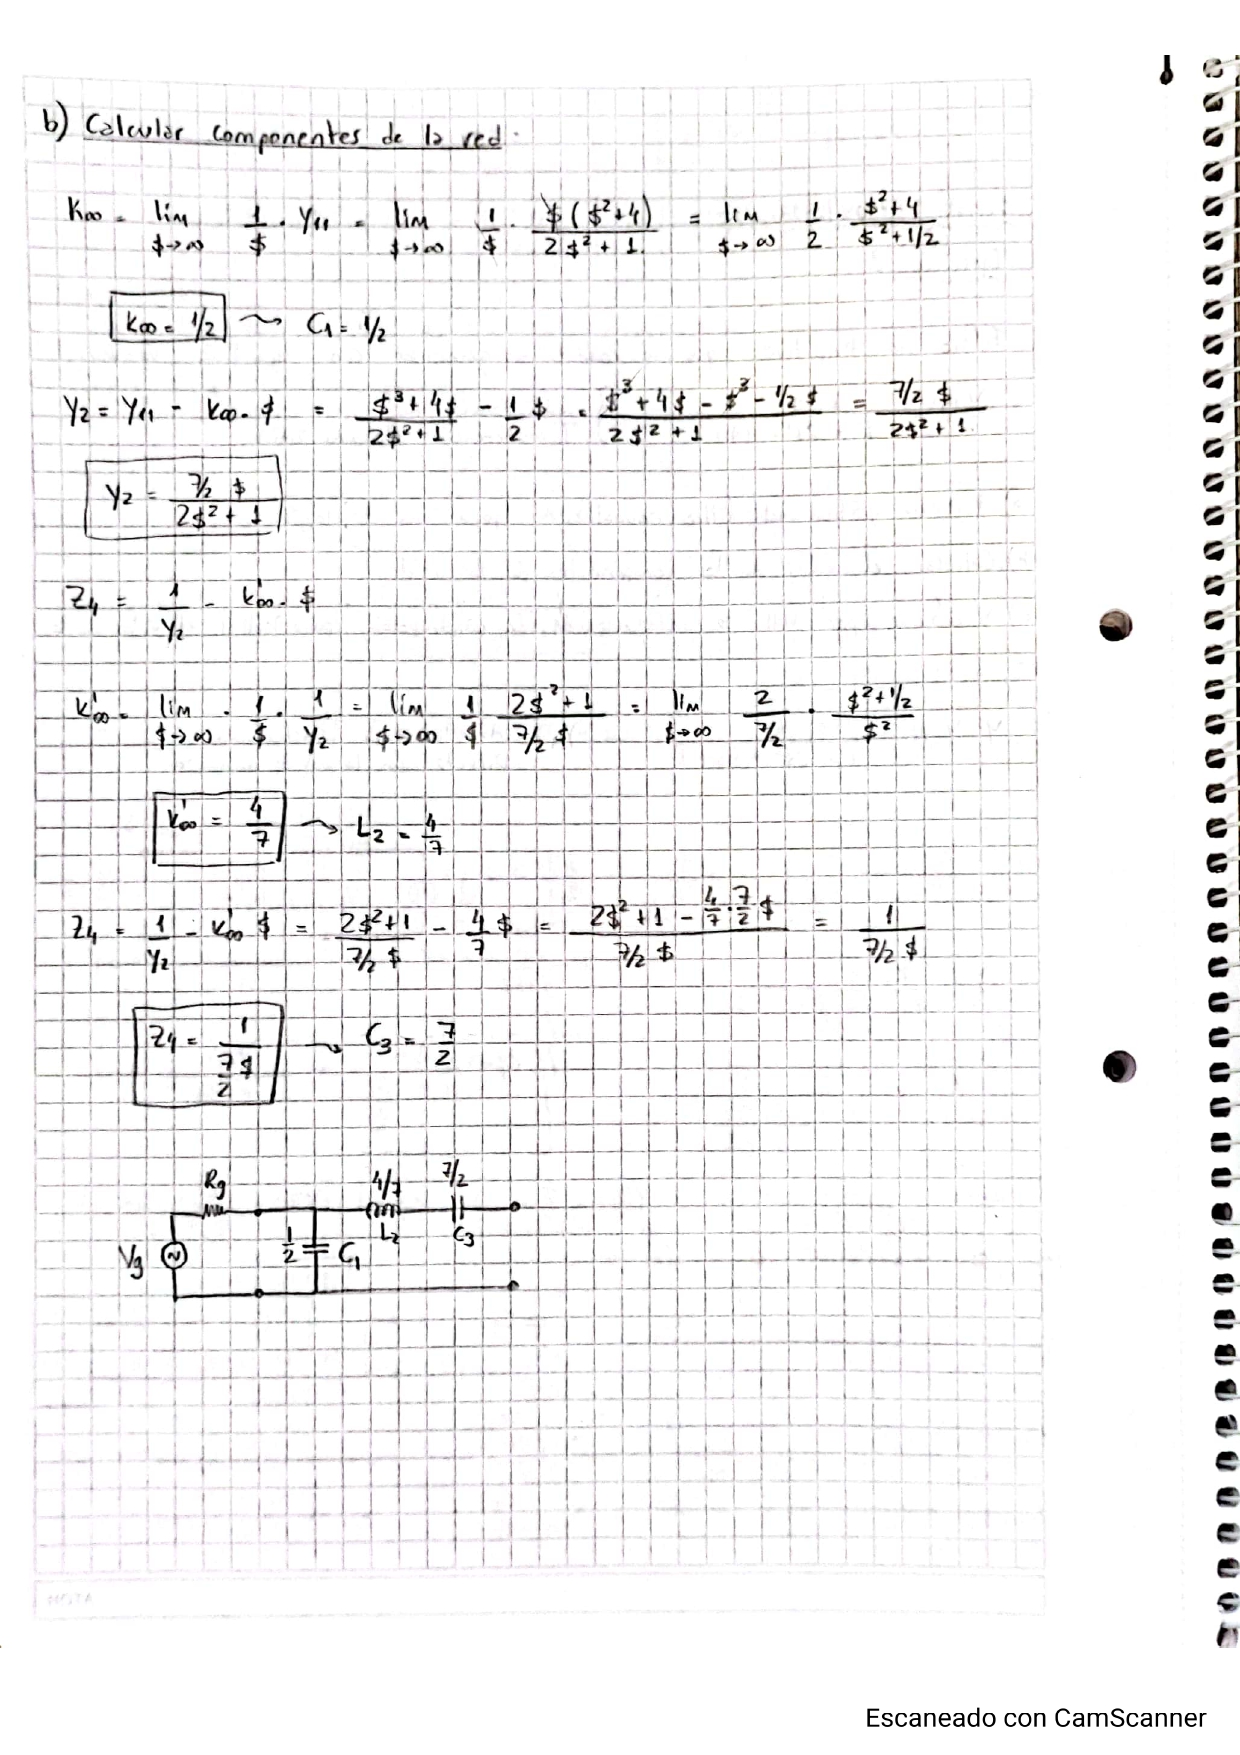 b) Calcular componentes de la red.
K∞ = lim $→∞ 1/$ · Y11 = lim $→∞ 1/$ · $($²+4)/(2$²+1) = lim $→∞ 1/2 · ($²+4)/($²+1/2)
K∞ = 1/2 ⟿ C1 = 1/2
Y2 = Y11 - K∞·$ = ($³+4$)/(2$²+1) - 1/2 $ = ($³+4$-$³-1/2$)/(2$²+1) = (7/2 $)/(2$²+1)
Y2 = (7/2 $)/(2$²+1)
Z4 = 1/Y2 - K'∞·$
K'∞ = lim $→∞ · 1/$ · 1/Y2 = lim $→∞ 1/$ (2$²+1)/(7/2 $) = lim $→∞ 2/(7/2) · ($²+1/2)/$²
K'∞ = 4/7 ⟿ L2 = 4/7
Z4 = 1/Y2 - K'∞ $ = (2$²+1)/(7/2 $) - 4/7 $ = (2$²+1 - 4/7·7/2 $)/(7/2 $) = 1/(7/2 $)
Z4 = 1/(7/2 $) ⟿ C3 = 7/2
Rg 4/7 7/2
L2 C3
Vg 1/2 C1
Escaneado con CamScanner